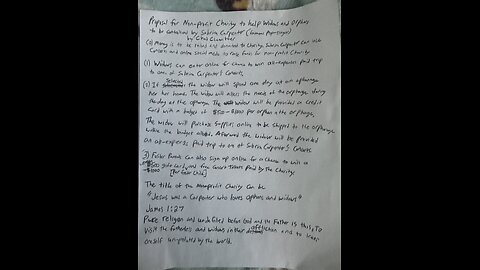 Proposal for Nonprofit Charity to help Widows and Orphans
to be contacted by Sabrina Carpenter
by
(0) Money is to be raised and donated to Charity. Sabrina Carpenter can use
Concerts and online social media to raise funds for nonprofit Charity.
(1) Widows can enter online for chance to win all-expenses paid trip
to one of Sabrina Carpenter's Concerts.
(2) If Selected the widow will spend one day at an orphanage
near her home. The widow will assess the needs of the orphanage during
the day at the orphanage. The widow will be provided a credit
Card with a budget of $50-$1000 per orphan in the orphanage.
The widow will purchase supplies online to be shipped to the orphanage
within the budget. Afterward the widow will be provided
an all-expenses paid trip to one of Sabrina Carpenter's Concerts
3) Foster Parents can also sign up online for a chance to win a
$500 gift card and free Concert Tickets Paid by the Charity.
-$1000 [Per Foster Child]
The title of the Nonprofit Charity can be
"Jesus was a Carpenter who loves orphans and widows"
James 1:27
Pure religion and undefiled before God and the Father is this, To
visit the fatherless and widows in their affliction and to keep
oneself unspotted by the world.